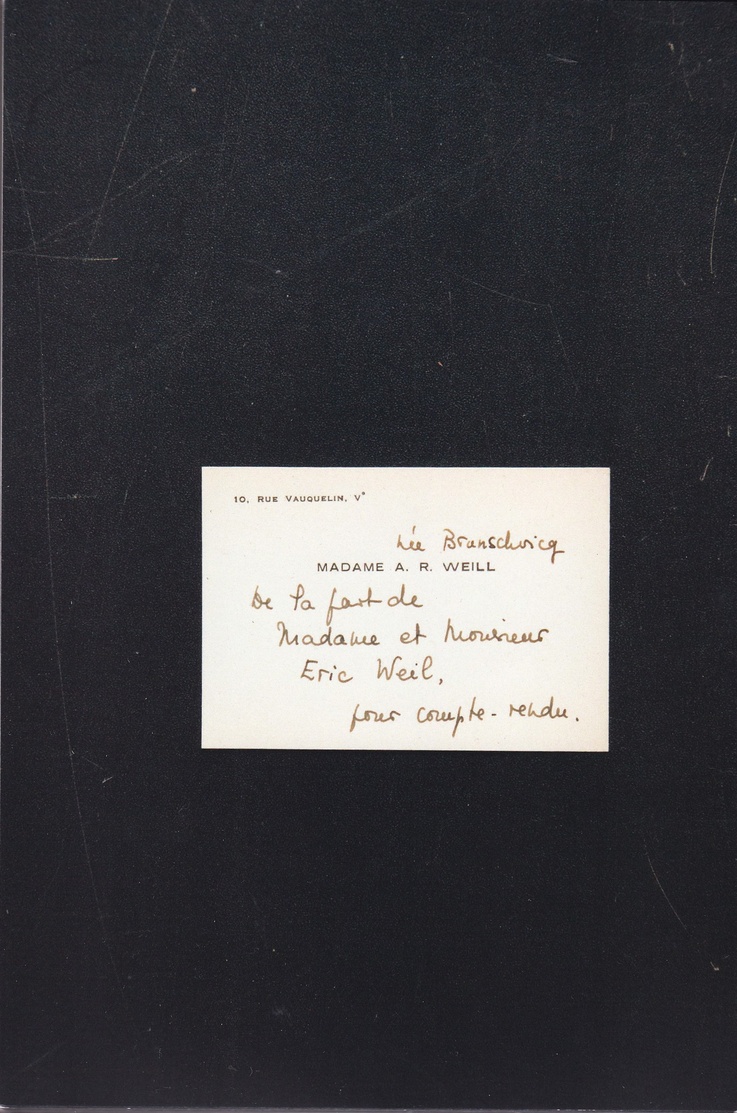 10, RUE VAUQUELIN, V°
née Brunschvicg
MADAME A. R. WEILL
De la part de
Madame et Monsieur
Eric Weil,
pour compte-rendu.